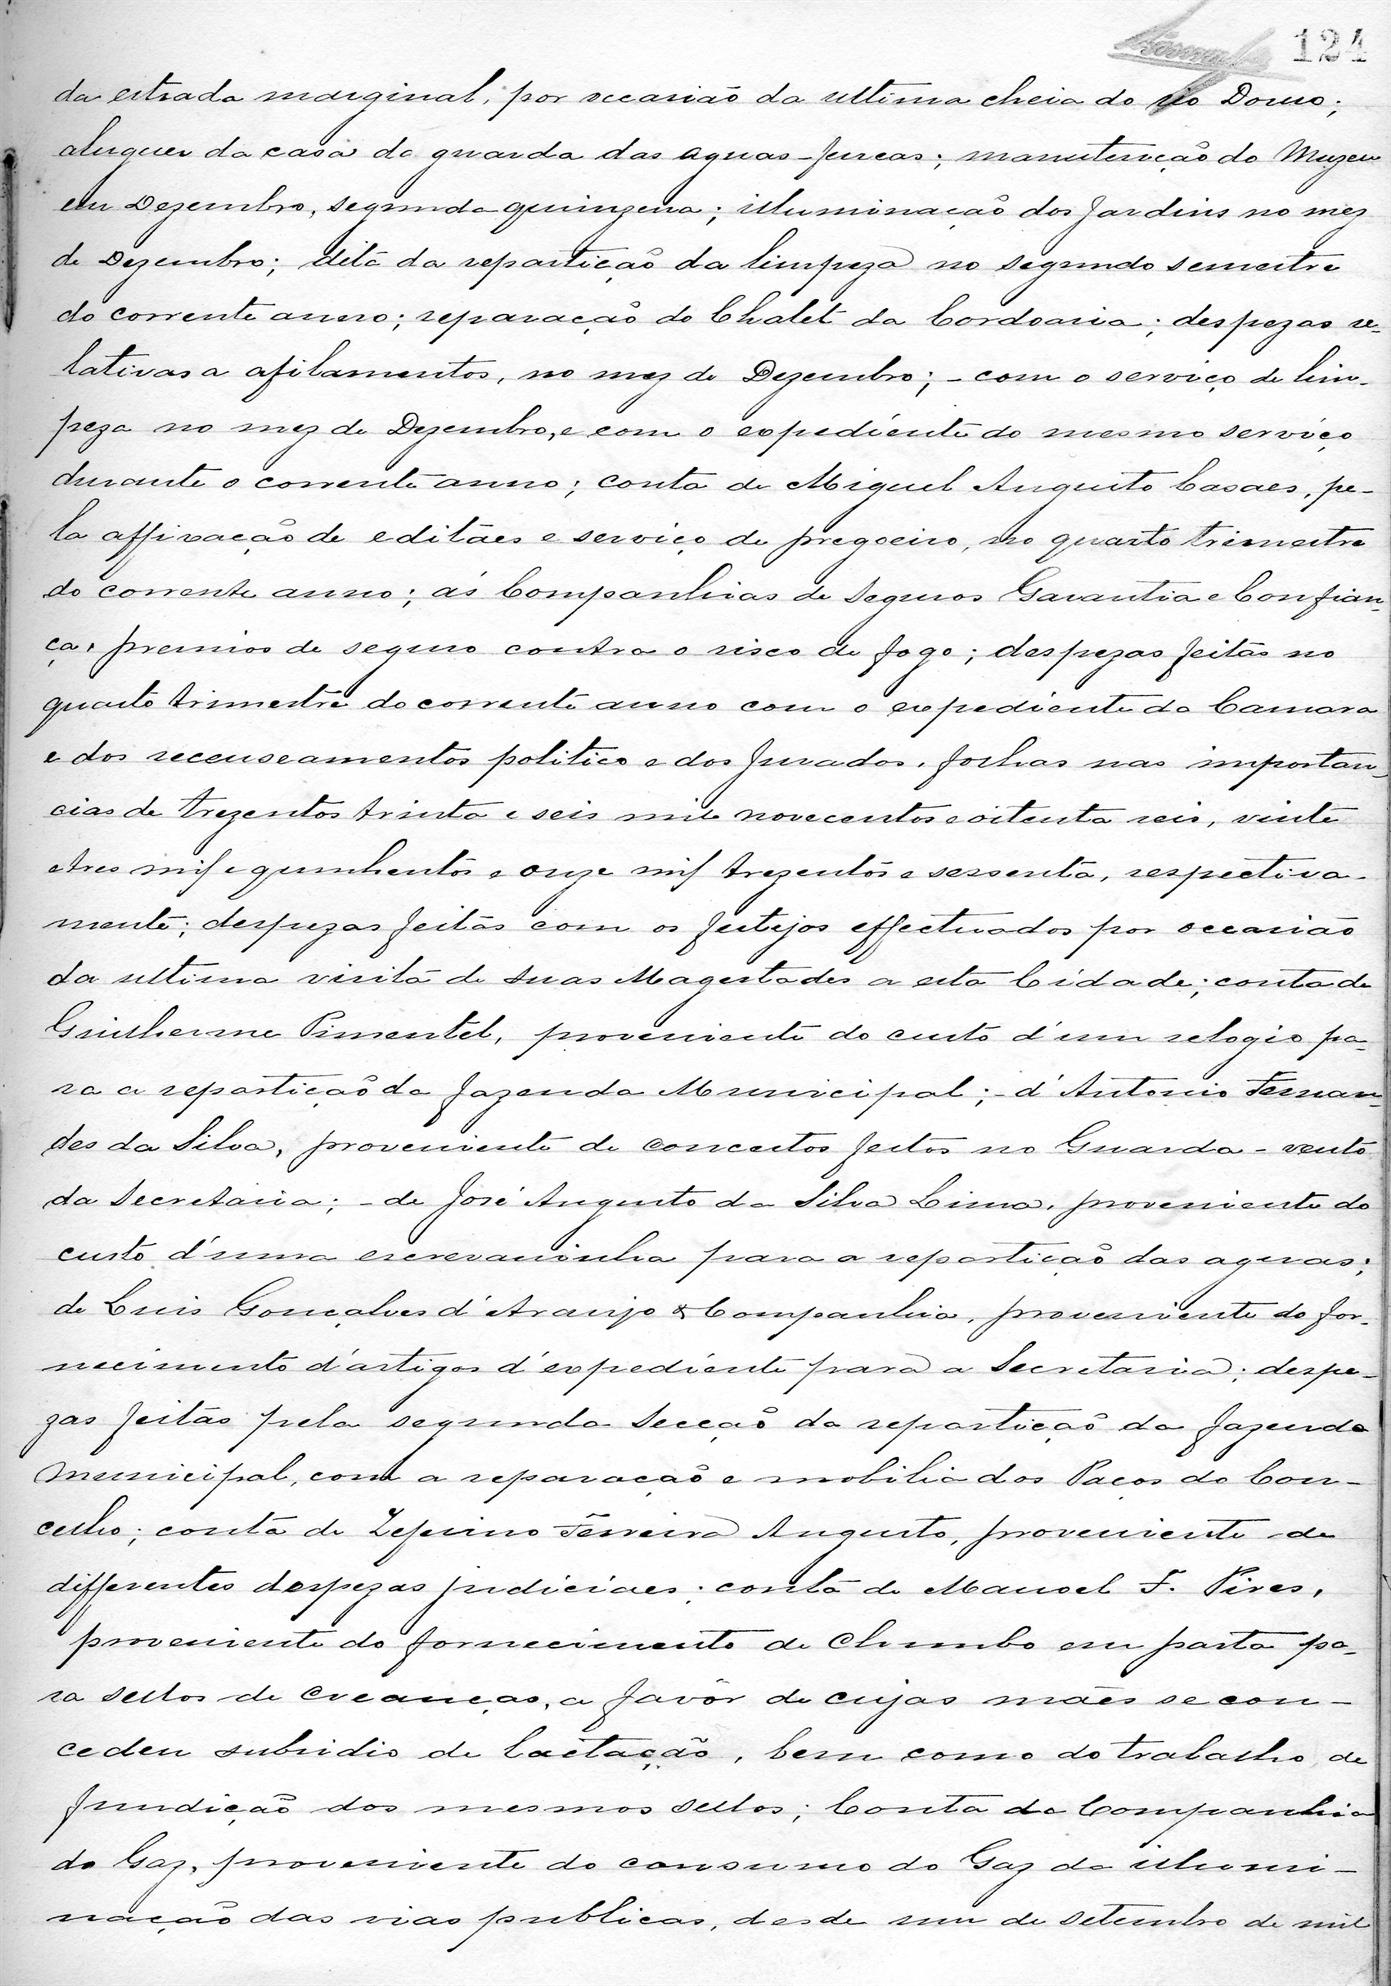 124
da estrada marginal, por occasião da ultima cheia do rio Douro;
aluguer da casa do guarda das aguas-ferreas; manutenção do Muzeu
em Dezembro, segunda quinzena; illuminação dos Jardins no mez
de Dezembro; dita da repartição da limpeza no segundo semestre
do corrente anno; reparação do Chalet da Cordoaria; despezas re-
lativas a afilamentos, no mez de Dezembro; - com o serviço de lim-
peza no mez de Dezembro, e com o expediente do mesmo serviço
durante o corrente anno; conta de Miguel Augusto Casaes, pe-
la affixação de editaes e serviço de pregoeiro, no quarto trimestre
do corrente anno; ás Companhias de Seguros Garantia e Confian-
ça, premios de seguro contra o risco de fogo; despezas feitas no
quarto trimestre do corrente anno com o expediente da Camara
e dos recenseamentos politico e dos Jurados, folhas nas importan-
cias de trezentos trinta e seis mil novecentos e oitenta reis, vinte
e tres mil e quinhentos e onze mil trezentos e sessenta, respectiva-
mente; despezas feitas com os festejos effectuados por occasião
da ultima visita de Suas Magestades a esta Cidade; conta de
Guilherme Pimentel, proveniente do custo d'um relogio pa-
ra a repartição da fazenda Municipal; - d'Antonio Fernan-
des da Silva, proveniente de concertos feitos no Guarda-vento
da Secretaria; - de José Augusto da Silva Lima, proveniente do
custo d'uma escrevaninha para a repartição das aguas;
de Luis Gonçalves d'Araujo & Companhia, proveniente do for-
necimento d'artigos d'expediente para a Secretaria; despe-
zas feitas pela segunda Secção da repartição da fazenda
Municipal, com a reparação e mobilia dos Paços do Con-
celho; conta de Zeferino Ferreira Augusto, proveniente de
differentes despezas judiciaes; conta de Manoel F. Pires,
proveniente do fornecimento de chumbo em pasta pa-
ra sellos de creanças, a favôr de cujas mães se con-
cedeu subsidio de lactação, bem como do trabalho de
fundição dos mesmos sellos; Conta da Companhia
do Gaz, proveniente do consumo do Gaz da illumi-
nação das vias publicas, desde um de Setembro de mil